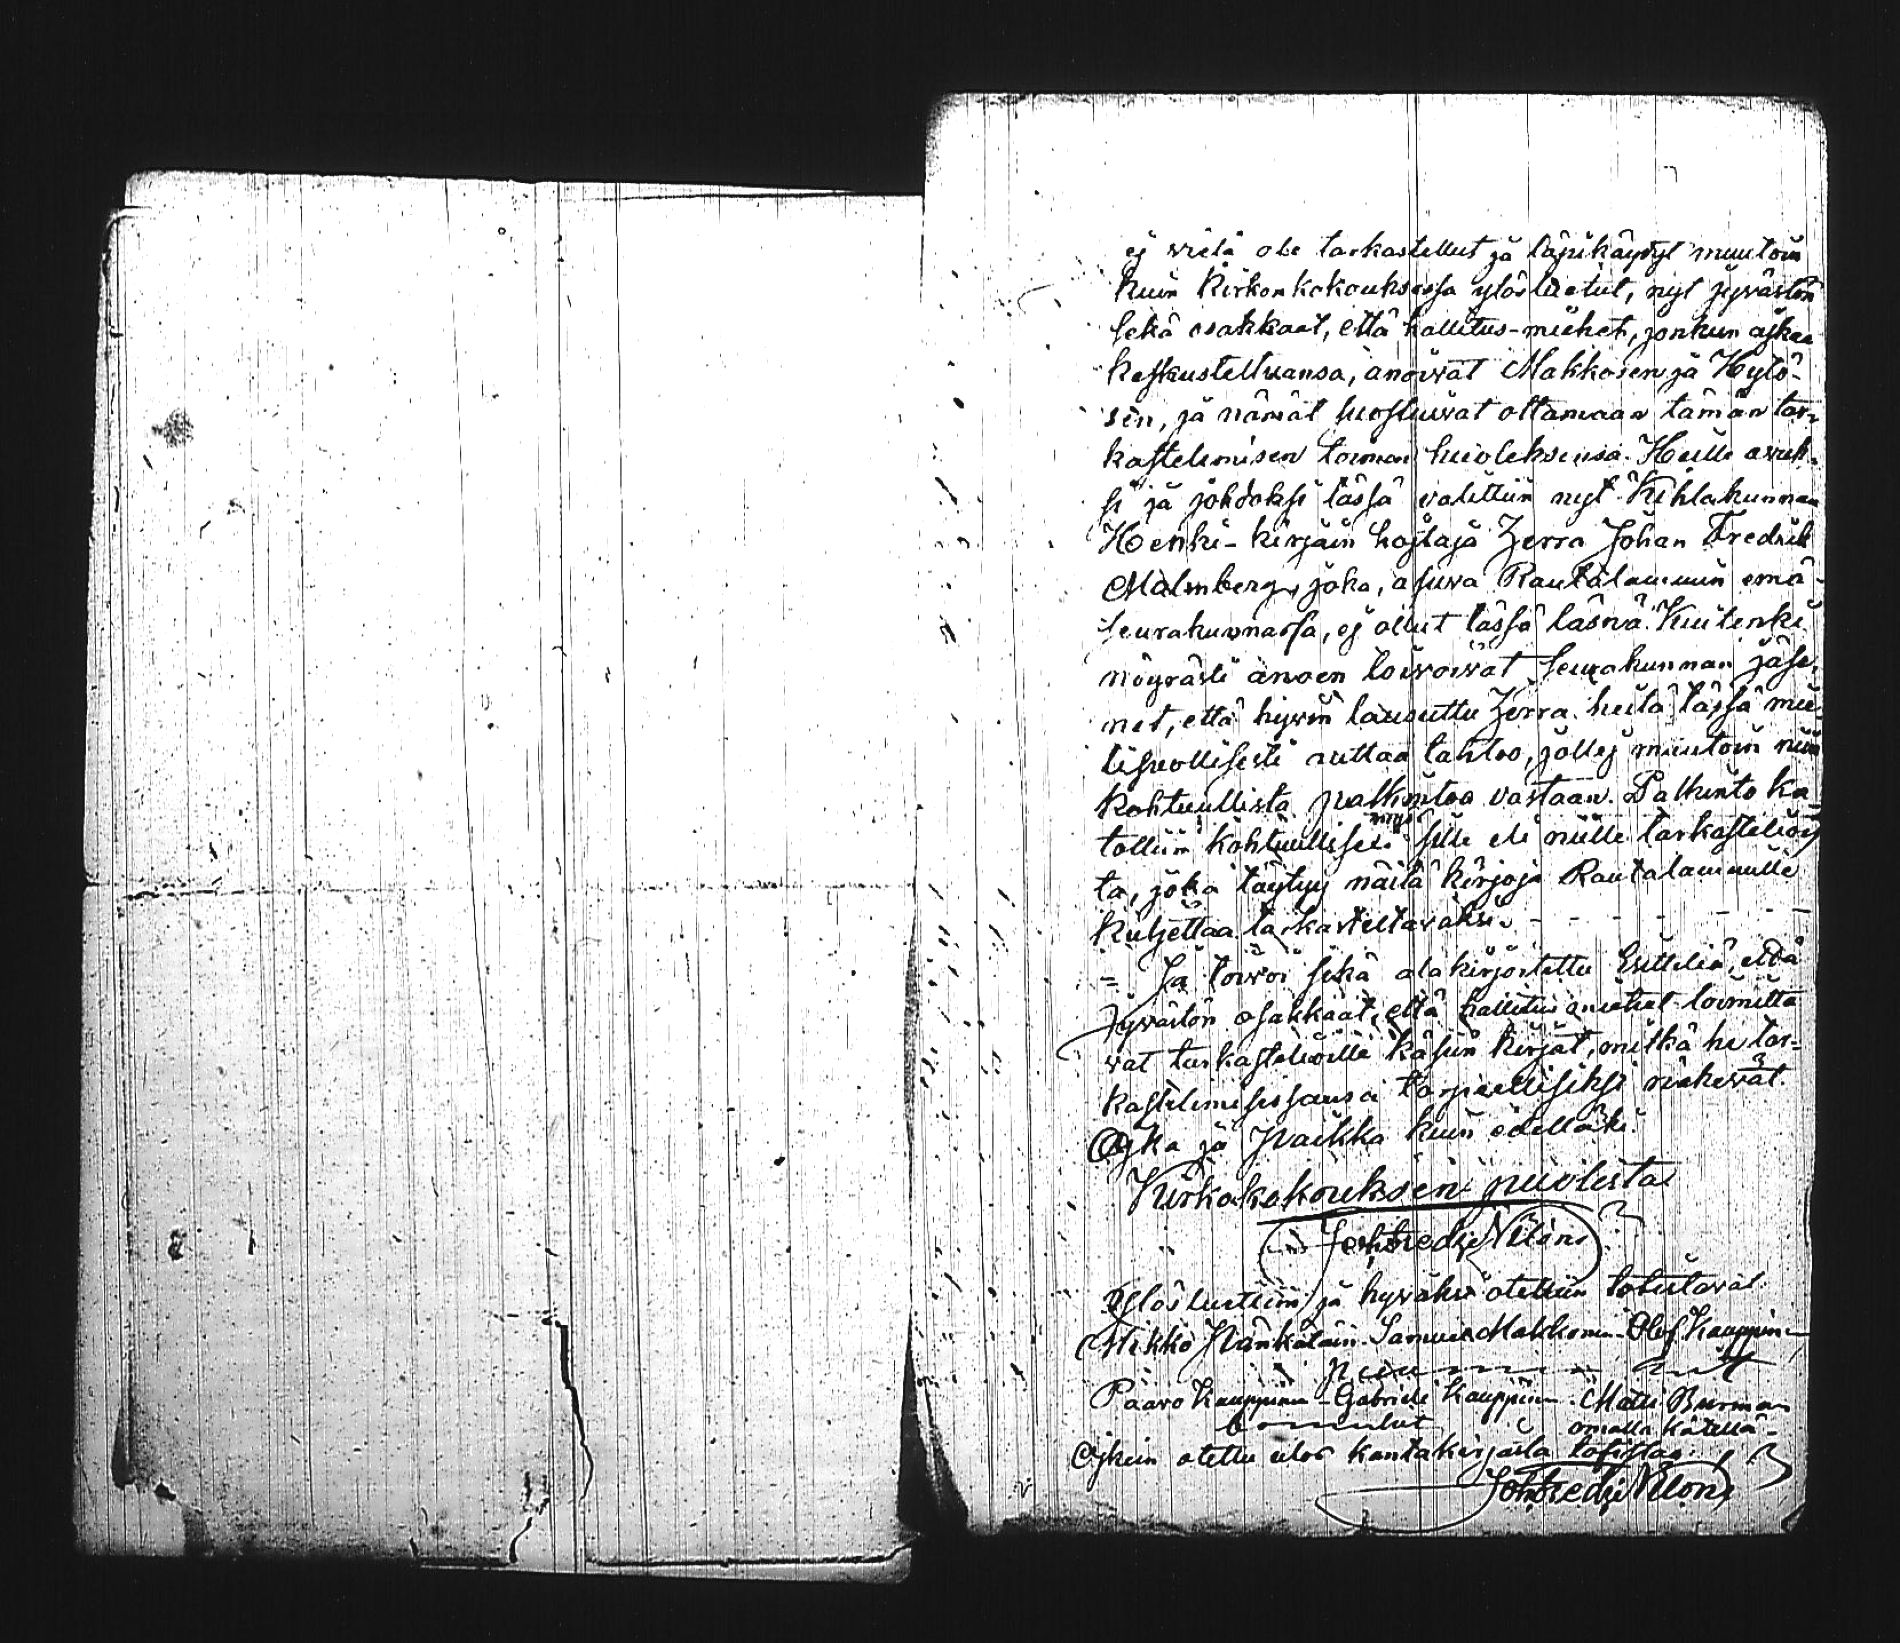 ej vielä ole tarkastellut ja läpikäydyt muutoin
kuin Kirkonkokouksessa ylösluetut, nyt jyvästön
sekä osakkaat, että hallitus-miehet, jonkun ajkaa
keskusteltuansa, anoivat Makkosen ja Hytö-
sen, ja nämät suostuivat ottamaan tämän tar-
kastelemisen toimen huoleksensa. Heille avuk-
si ja johdoksi tässä valittiin nyt Kihlakunnan
Henki-kirjain hojtaja Herra Johan Fredrik
Malmberg, joka, asuva Rautalammin emä-
seurakunnassa, ej ollut tässä läsnä. Kuitenki
nöyrästi anoen toivoivat Seurakunnan jäse-
net, että hyvin lausuttu Herra heitä tässä mie-
lisuollisesti auttaa tahtoo, jollej muutoin niin
kohtuullista palkintoa vastaan. Palkinto ka-
tottiin kohtuulliseksi myös sille eli niille tarkasteliois
ta, joka täytyy näitä kirjoja Rautalammille
kuljettaa tarkasteltavaksi. - - - - - -
= Ja toivoi sekä alakirjoitettu Esittelia, että
Jyvästön osakkaat, että hallitus miehet toimitta
vat tarkastelioille käsiin kirjat, mitkä he tar-
kastelemisessansa tarpeellisiksi näkevät.
Ajka ja paikka kuin edelläki.
Kirkokokouksen puolesta
Ylösluettiin ja hyväksi otettiin todistavat
Mikko Hänkäläin. Samuel Makkonen. Olof Kauppine
Paavo Kauppinen - Gabriel Kauppinen. Matti Burman
omalla kädellä -
Ojkein otettu ulos kantakirjasta todistaa: